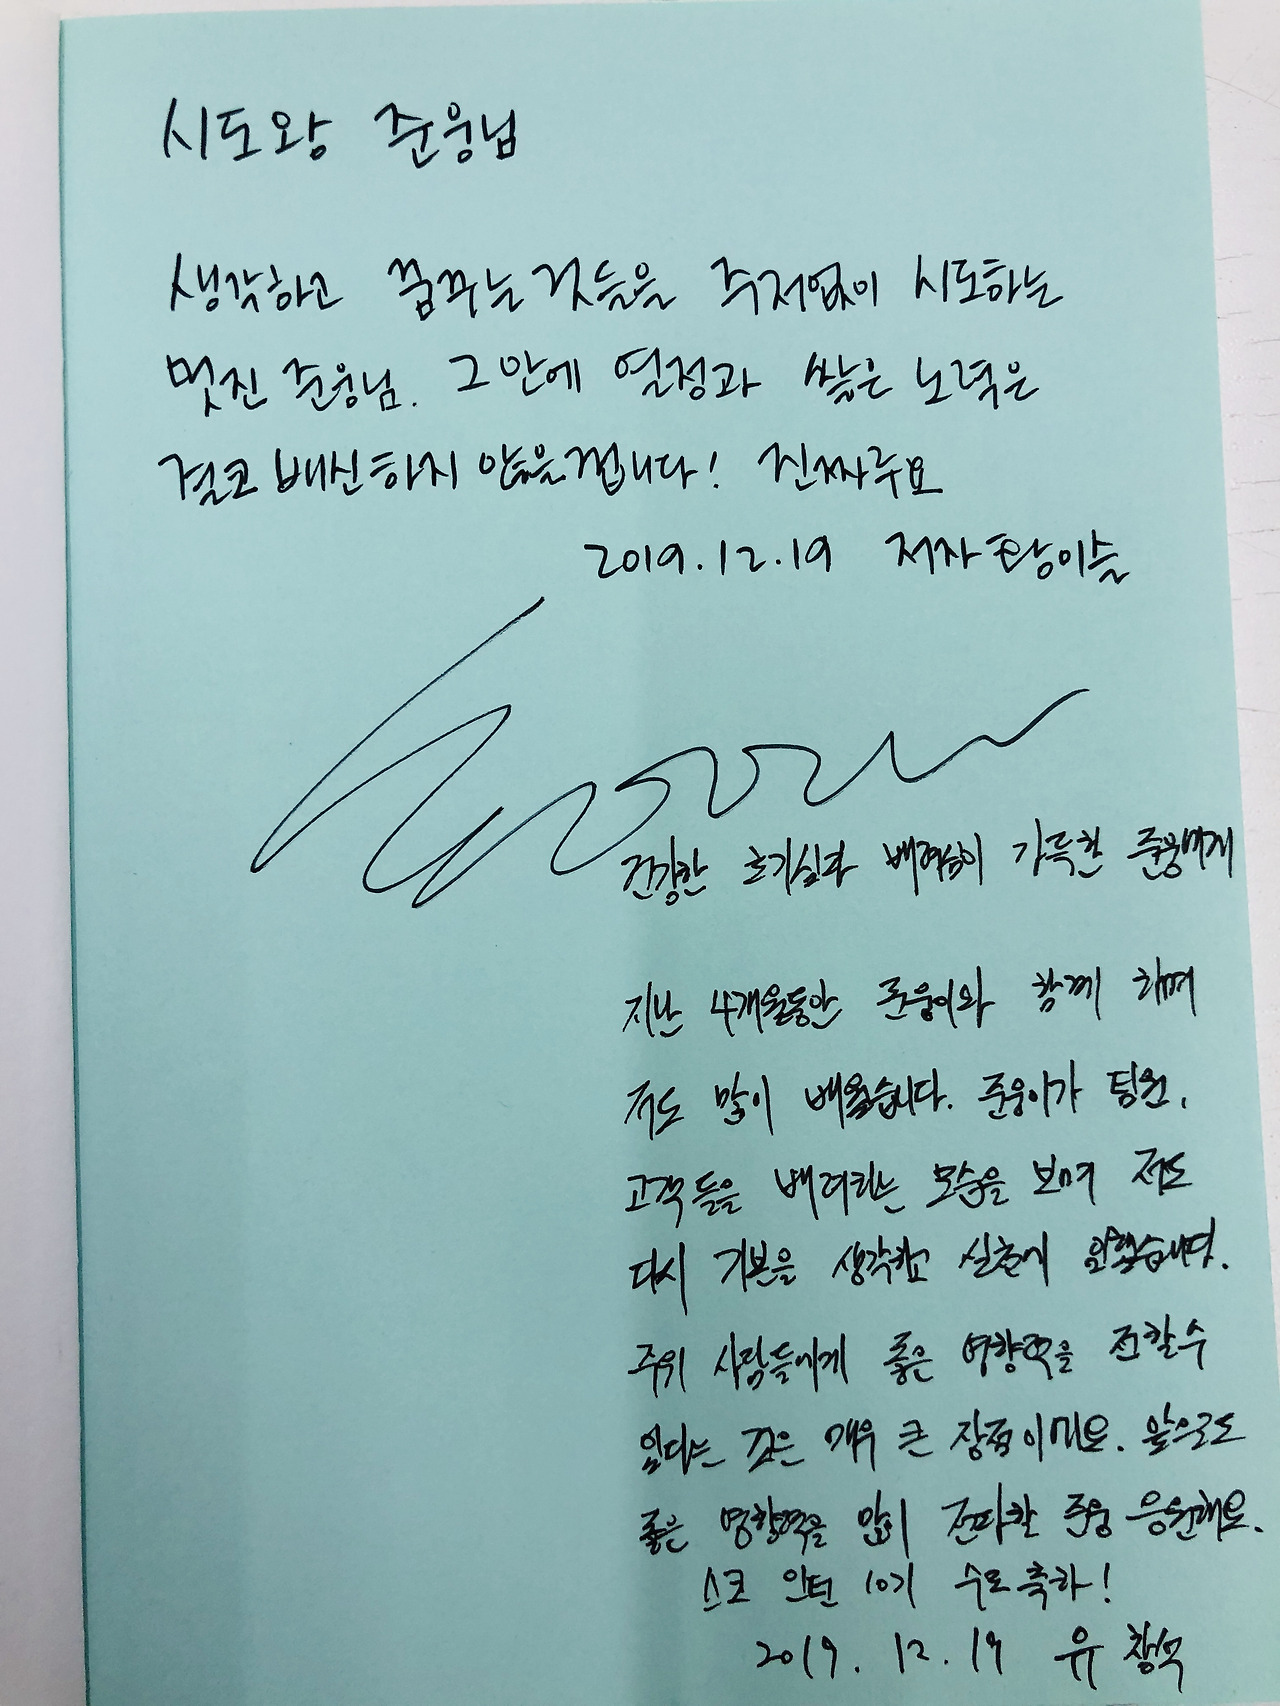 시도왕 준웅님
생각하고 꿈꾸는 것들을 주저없이 시도하는
멋진 준웅님. 그 안에 열정과 쌓은 노력은
결코 배신하지 않을겁니다! 진짜루요
2019.12.19 저자 황이슬
건강한 호기심과 배려심이 가득한 준웅에게
지난 4개월동안 준웅이와 함께 하며
저도 많이 배웠습니다. 준웅이가 팀원,
고객들을 배려하는 모습을 보며 저도
다시 기본을 생각하고 실천에 임했습니다.
주위 사람들에게 좋은 영향력을 전할수
있다는 것은 매우 큰 장점이에요. 앞으로도
좋은 영향력을 많이 전파할 준웅 응원해요.
스코 인턴 10기 수료 축하!
2019. 12. 19 유